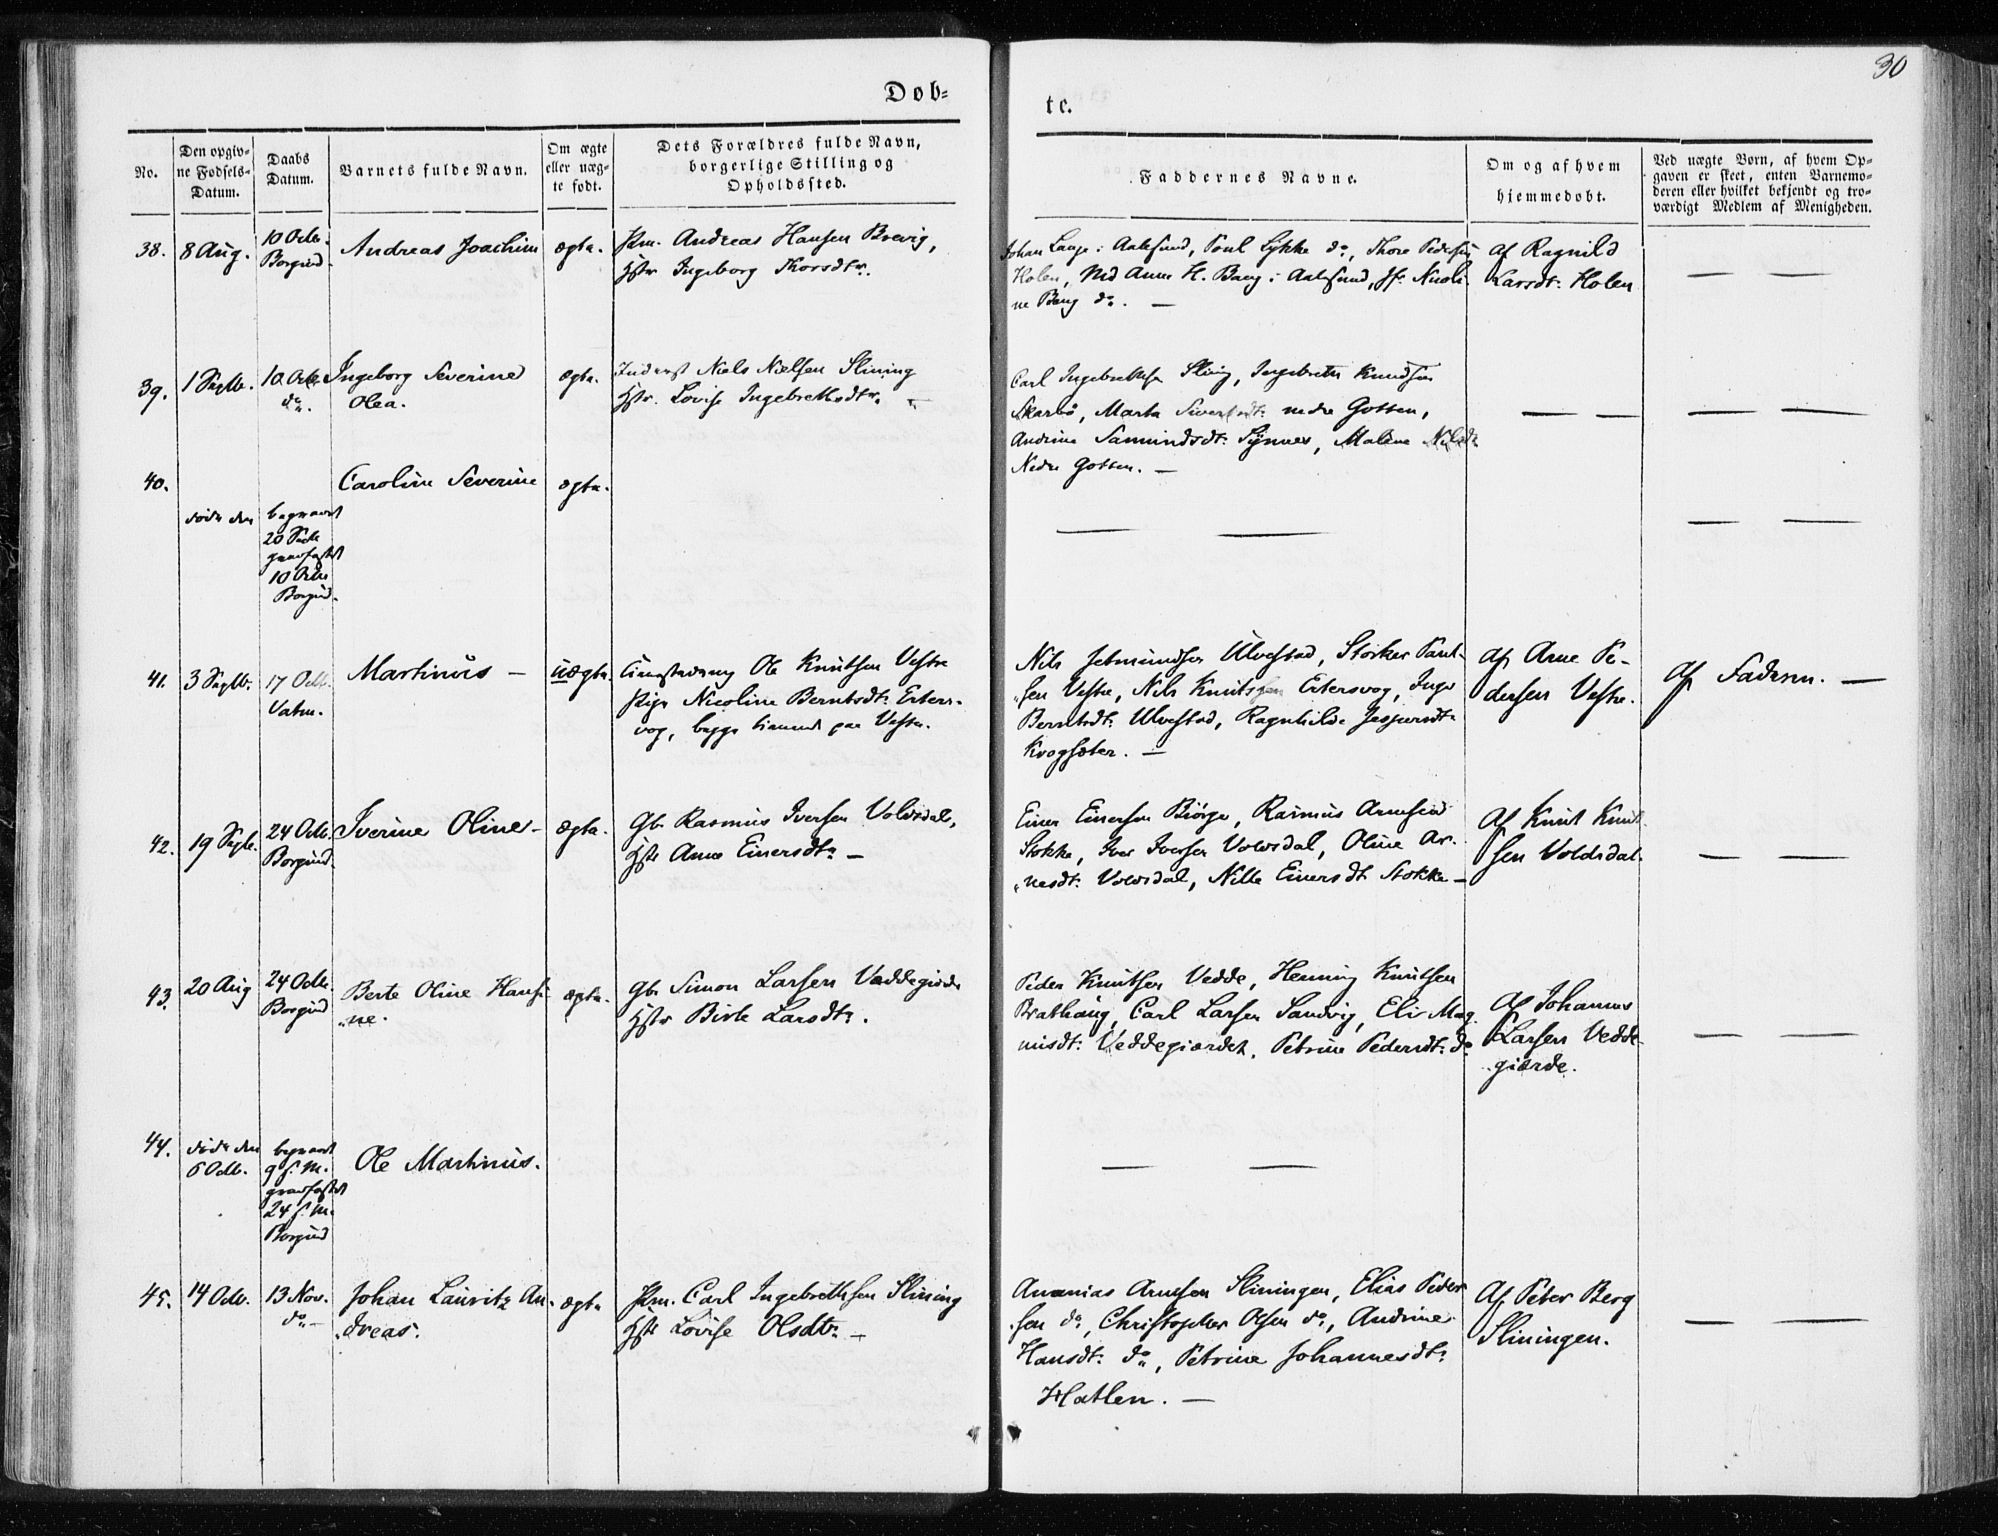 30
Døb-
te.
No.
Den opgiv-
ne Fødsels-
Datum.
Daabs
Datum.
Barnets fulde Navn.
Om ægte
eller uæg-
te født.
Dets Forældres fulde Navn,
borgerlige Stilling og
Opholdssted.
Faddernes Navne.
Om og af hvem
hjemmedøbt.
Ved uægte Børn, af hvem Op-
gaven er skeet, enten Barnemo-
deren eller hvilket bekjendt og tro-
værdigt Medlem af Menigheden.
38.
8 Aug.
10 Octb.
Borgund.
Andreas Joachim
ægte.
Andreas Hansen Brevig,
Hstr Ingeborg Thorsdtr.
Johan Lange i Aalesund, Poul Lykke do, Thore Pedersen
Holen, Md Anne H. Bang i Aalesund, Jfr Nicoli-
ne Bang do. —
Af Ragnild
Larsdt: Holen
— —
39.
1 Septb.
10 Octb.
do.
Ingeborg Severine
Olea.
ægte.
Inderst Niels Nielsen Slining
Hstr. Lovise Ingebrethsdtr. —
Carl Ingebrethsen Slinig, Ingebreth Knudsen
Skarbö, Marta Sivertsdt: nedre Gotten,
Andrine Samundsdt: Synnes, Malene
Nedre Gotten. —
— —
— —
40.
døde den
begravet
20 Sept
gravfæstet
10 Octb
Borgund.
Caroline Severine
ægte.
— —
— —
41.
3 Septb.
17 Octb.
Vatne.
Martinus —
uægte.
Ole Knutsen Vestre
Pige Nicoline Berntsdt: Eiters-
vog, begge tienende paa Vestre.
Nils Jetmundsen Ulvestad, Storker Paul-
sen Vestre, Nils Knutsen Eitersvog, Inger
Berntsdt: Ulvestad, Ragnhilde Jespersdt:
Krogsæter. —
Af Arne Pe-
dersen Vestre.
Af Faderen. —
42.
19 Septb.
24 Octb.
Borgund.
Iverine Oline —
ægte.
Gbr Rasmus Iversen Voldsdal,
Hstr Anne Einersdtr —
Einer Einersen Biörge, Rasmus Arnesen
Stokke, Iver Iversen Voldsdal, Oline Ar-
nesdt: Voldsdal, Nille Einersdt Stokke —
Af Knut Knut-
sen Voldsdal.
— —
43.
20 Aug
24 Octb.
Borgund
Berte Oline Hansi-
ne.
ægte.
Gbr Simon Larsen Veddegierde
Hstr Birte Larsdtr.
Peder Knutsen Vedde, Henning Knutsen
Brathaug, Carl Larsen Sandvig, Eli Mag-
nisdt: Veddegiærdet, Petrine Pedersdt: do
Af Johannes
Larsen Vedde-
giærde.
— —
44.
døde den
6 Octb.
begravet
9 f. M.
gravfæstet
24 f. M.
Borgund
Ole Martinus.
— —
45.
14 Octb.
13 Nov.
do —
Johan Lauritz An-
dreas.
ægte
Carl Ingebrethsen Slining
Hstr Lovise Olsdtr. —
Ananias Arnesen Sliningen, Elias Peder-
sen do, Christopher Olsen do, Andrine
Hansdt: do, Petrine Johannesdt:
Hatlen. —
Af Peter Berg
Sliningen.
— —